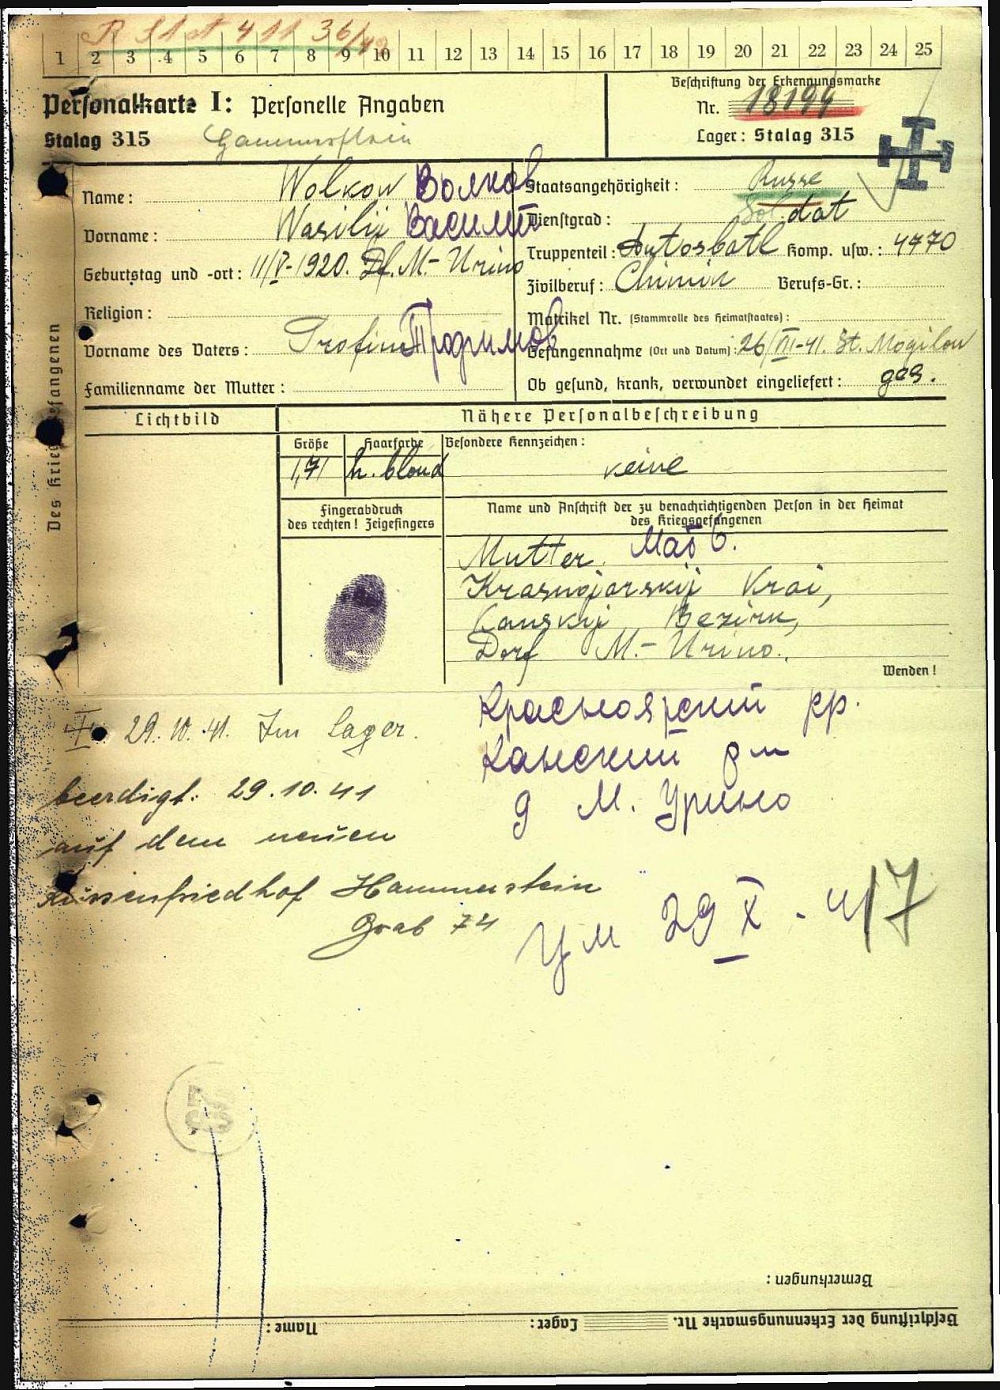 R 11 № 411 36/42
1 2 3 4 5 6 7 8 9 10 11 12 13 14 15 16 17 18 19 20 21 22 23 24 25
Personalkarte I: Personelle Angaben
Stalag 315
Beschriftung der Erkennungsmarke
Nr. 18199
Lager: Stalag 315
Des Kriegsgefangenen
Name: Wolkow Волков
Vorname: Wasilij Василий
Geburtstag und -ort: 11/V-1920. Df. M.-Urino
Religion:
Vorname des Vaters: Trofim Трофимов
Familienname der Mutter:
Staatsangehörigkeit: Russe
Dienstgrad: Soldat
Truppenteil: Komp. usw.: 4770
Zivilberuf: Berufs-Gr.:
Matrikel Nr. (Stammrolle des Heimatstaates):
Gefangennahme (Ort und Datum): 26/VII-41. St. Mogilow
Ob gesund, krank, verwundet eingeliefert: ges.
Lichtbild
Nähere Personalbeschreibung
Größe Haarfarbe Besondere Kennzeichen:
1,71 h. blond keine
Fingerabdruck
des rechten! Zeigefingers
Name und Anschrift der zu benachrichtigenden Person in der Heimat
des Kriegsgefangenen
Mutter.
Krasnojarskij Krai,
Kanskij Bezirk,
Dorf M.-Urino.
Wenden!
Красноярский кр.
Канский
д М. Урино
29.10.41. Im Lager.
beerdigt: 29.10.41
auf dem neuen
Russenfriedhof Hammerstein
Grab 74
Ум 29 X - 41
Bemerkungen:
Beschriftung der Erkennungsmarke Nr. Lager: Name: